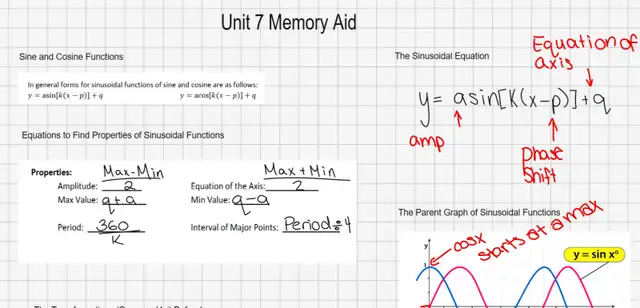 Unit 7 Memory Aid
Sine and Cosine Functions
In general forms for sinusoidal functions of sine and cosine are as follows:
y = asin[k(x − p)] + q y = acos[k(x − p)] + q
Equations to Find Properties of Sinusoidal Functions
Properties:
Amplitude: Max-Min / 2
Equation of the Axis: Max + Min / 2
Max Value: q + a
Min Value: q - a
Period: 360 / K
Interval of Major Points: Period ÷ 4
The Sinusoidal Equation
Equation of
axis
y = asin[K(x-p)] + q
amp
phase
shift
The Parent Graph of Sinusoidal Functions
cosx
starts at a max
y
1
y = sin x°